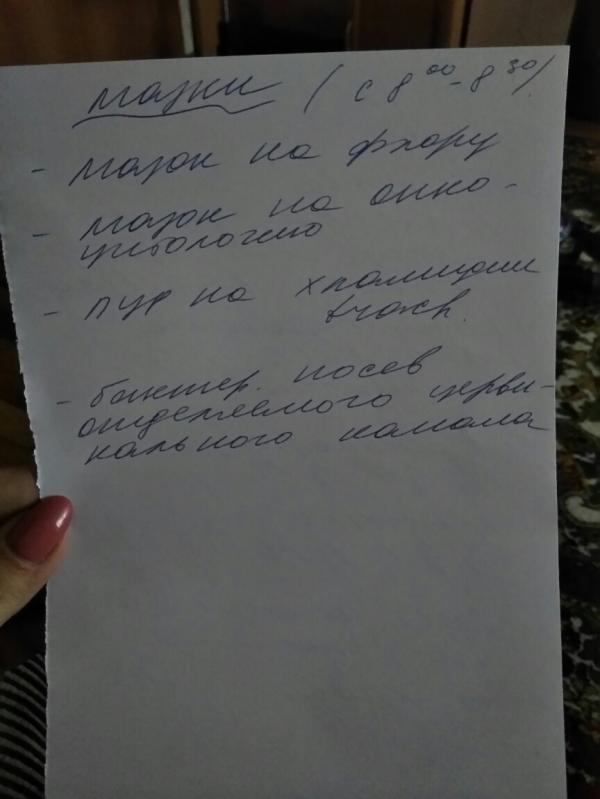 мазки (с 8⁰⁰-8³⁰)
- мазок на флору
- мазок на онко-
цитологию
- ПЦР на хламидии
trach.
- бактер. посев
отделяемого церви-
кального канала